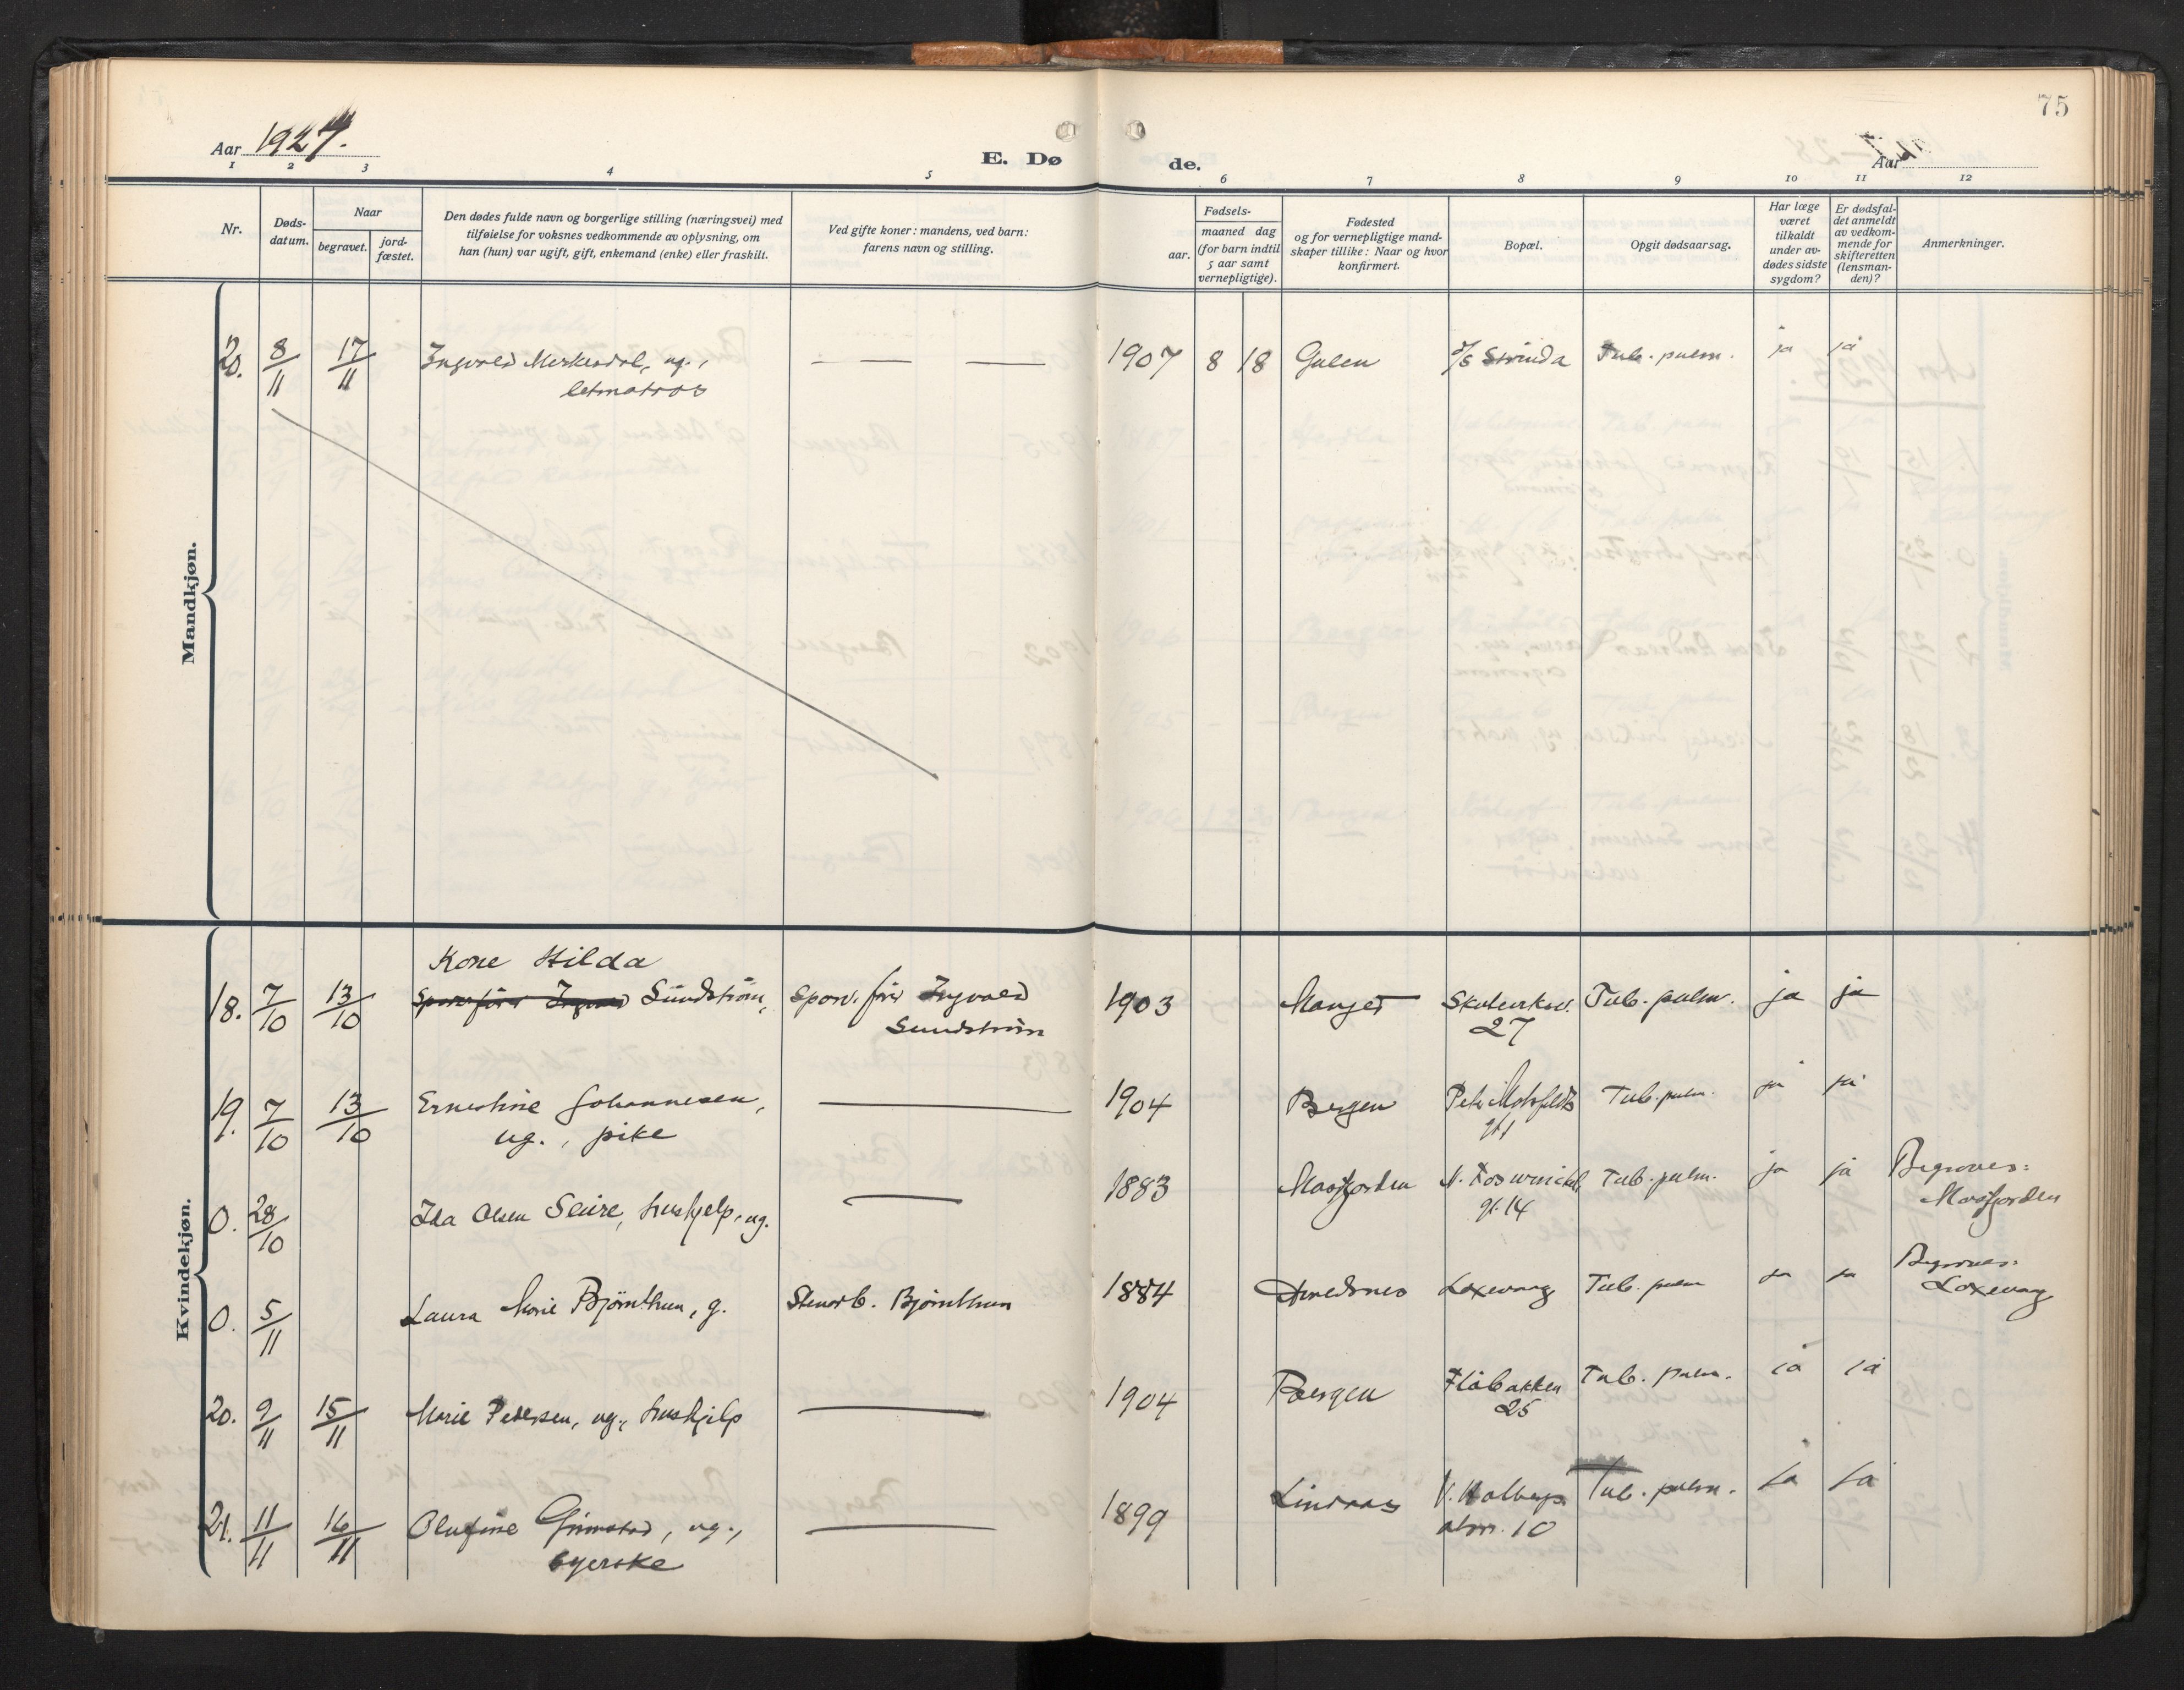 75
Aar 1927.
Aar
E. Dø de.
1 2 3 4 5 6 7 8 9 10 11 12
Nr.
Døds-
datum.
Naar
begravet.
jord-
fæstet.
Den dødes fulde navn og borgerlige stilling (næringsvei) med
tilføielse for voksnes vedkommende av oplysning, om
han (hun) var ugift, gift, enkemand (enke) eller fraskilt.
Ved gifte koner: mandens, ved barn:
farens navn og stilling.
Fødsels-
aar.
maaned dag
(for barn indtil
5 aar samt
vernepligtige).
Fødested
og for vernepligtige mand-
skaper tillike: Naar og hvor
konfirmert.
Bopæl.
Opgit dødsaarsag.
Har læge
været
tilkaldt
under av-
dødes sidste
sygdom?
Er dødsfal-
det anmeldt
av vedkom-
mende for
skifteretten
(lensman-
den)?
Anmerkninger.
Mandkjøn.
20. 8/11 17/11 Ingvald Merkesdal, ug., — — — 1907 8 18 Gulen D/S Tub. pulm. ja ja
letmatros
Kvindekjøn.
Kone Hilda
18. 7/10 13/10 Sporv.fører Ingvald Sundström, Sporv. fører Ingvald 1903 Manger 27 Tub. pulm. ja ja
Sundström
19. 7/10 13/10 Ernestine Johannesen, — 1904 Bergen Tub. pulm. ja ja
ug., pike
0. 28/10 Ida Olsen hushjelp, ug. — 1883 Masfjorden gt. 14 Tub. pulm. ja ja Begraves:
Masfjorden
0. 5/11 Laura Marie Bjørnthun, g. Stenarb. Bjørnthun 1884 Loxevaag Tub. pulm ja ja Begraves:
Loxevaag
20. 9/11 15/11 Marie Pedersen, ug., hushjelp — 1904 Bergen Fløbakken Tub. pulm. ja ja
25
21. 11/11 16/11 Olufine Grimstad, ug., — 1899 Lindaas V. Holbergs Tub. pulm. ja ja
syerske alm. 10